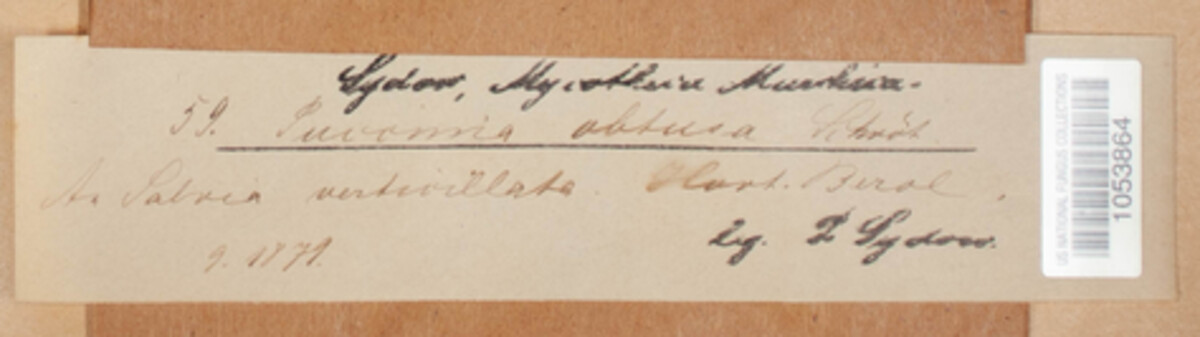 Sydow, Mycotheca Marchica.
59. Puccinia obtusa Schröt
An Salvia verticillata. Hort. Berol.
9. 1879.
leg. P Sydow.
US NATIONAL FUNGUS COLLECTIONS
1053864